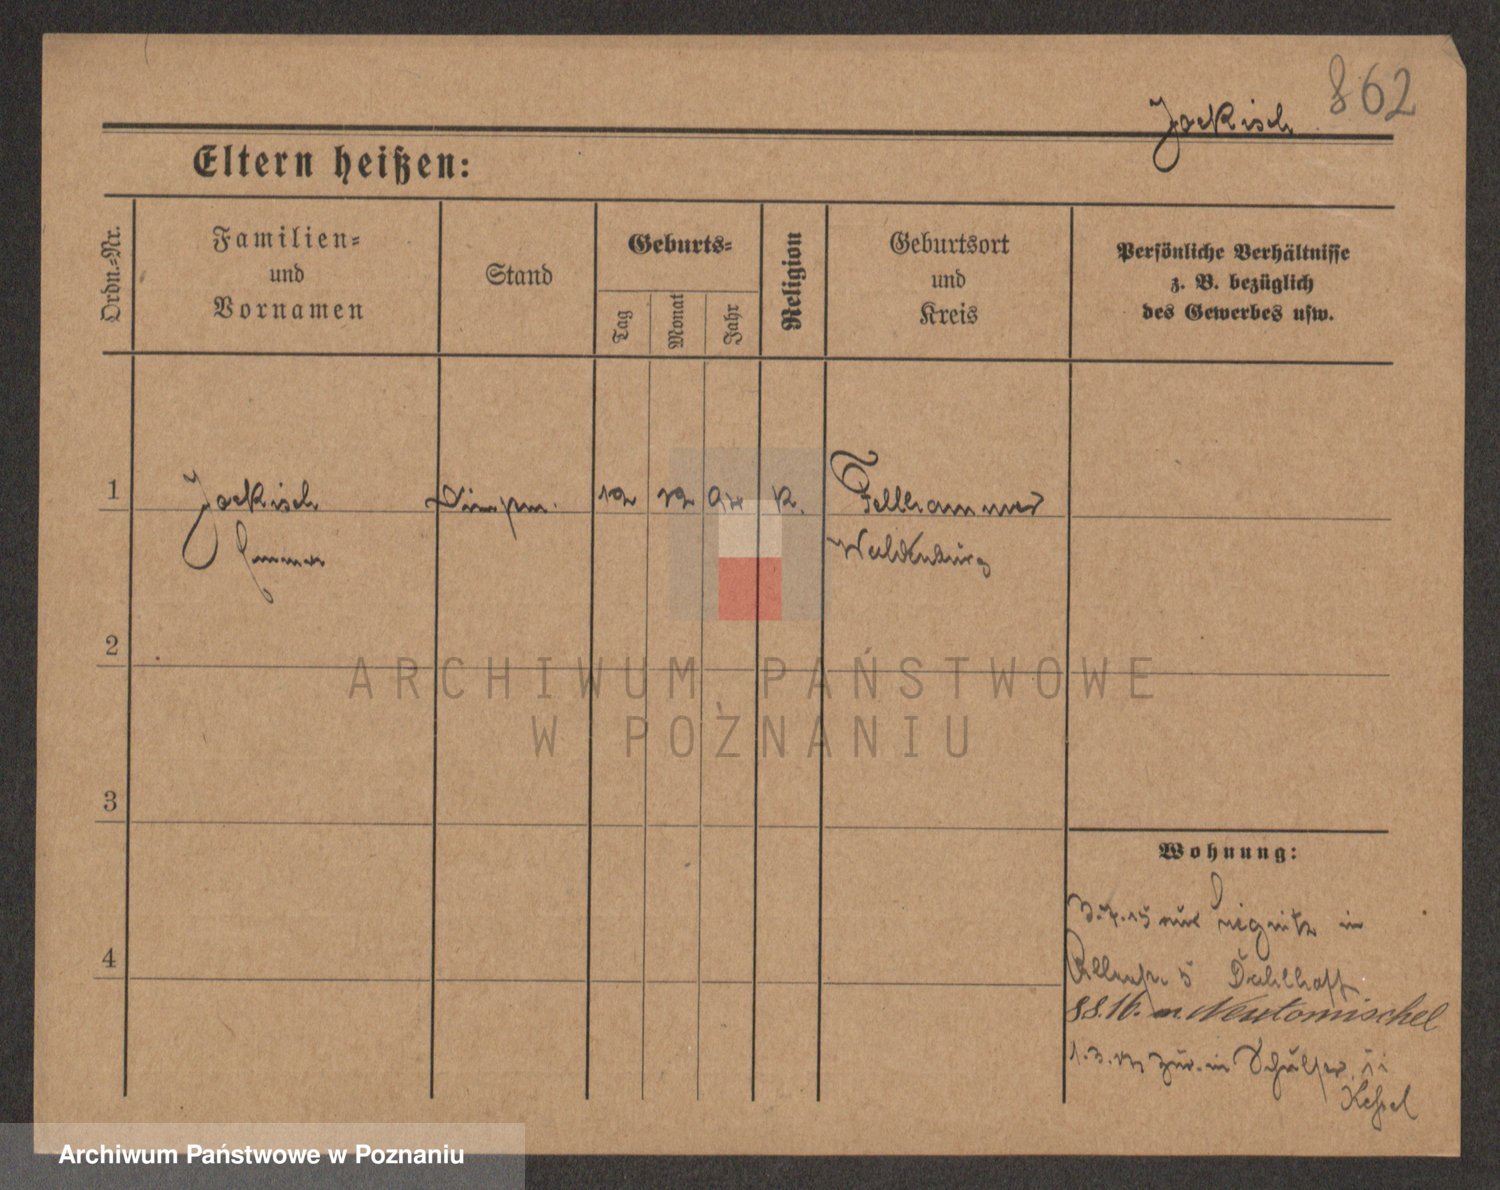 862
Jackisch
Eltern heißen:
Ordn.-Nr.
Familien-
und
Vornamen
Stand
Geburts-
Tag
Monat
Jahr
Religion
Geburtsort
und
Kreis
Persönliche Verhältnisse
z. B. bezüglich
des Gewerbes usw.
1
Jackisch
Emma
12
12
94
K.
Fellhammer
Waldenburg
2
3
4
Wohnung:
3.7.15 aus Liegnitz in
5 Dahlhoff
8.8.16. n. Neutomischel
1.3. zur. in
ARCHIWUM PAŃSTWOWE
W POZNANIU
Archiwum Państwowe w Poznaniu